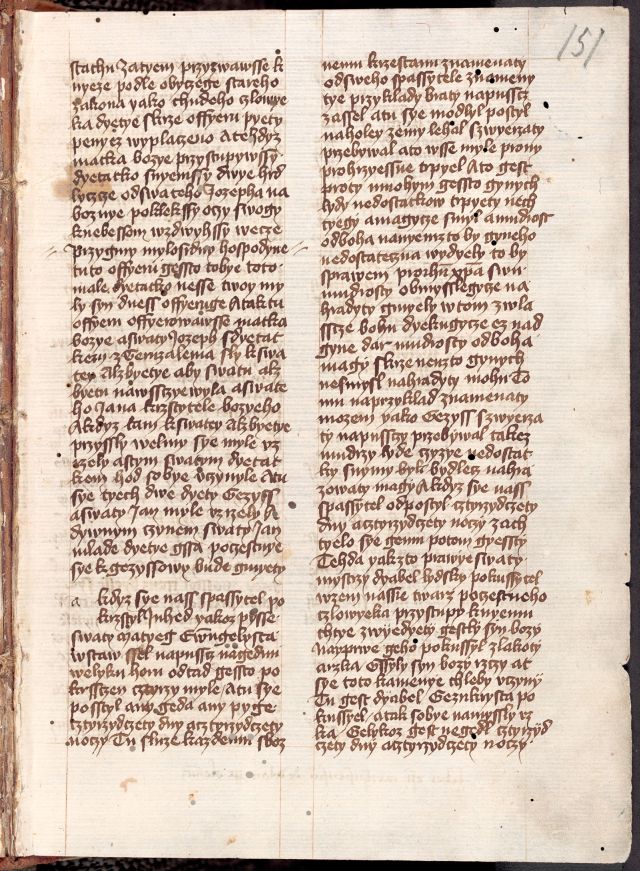 151
stachu zatyem przyzwawsse k
nyeze podle obyczege stareho
zakona yako chudeho czlowye
ka dyetye skrze offyeru pyety
penyez wyplaczeno A tehdyz
matka bozye przystupywssy
dyetatko snyemssy dwye hrd
lyczcze od swateho Jozepha na
boznye poklekssy oczy swogy
k nebessom wzdwyhssy wecze
Przygmy mylosirdny hospodyne
tuto offyeru gessto tobye toto
male dyetatko nesse twoy my
ly syn dness offyeruge A tak tu
offyeru offyerowawsse matka
bozye a swaty Jozeph s dyetat
kem z Geruzalema sly k swa
tey Alzbyetye aby swatu alz
byetu nawsstyewyla a swate
ho Jana krzstytele bozyeho
A kdyz tam k swatey Alzbyetye
przyssly welmy sye myle wz
yzely a s tym swatym dyetat
kem hod sobye uczynyle A tu
sye tyech dwe dyety Gezyss
a swaty Jan myle wzyzely A
dywnym czynem swaty Jan
mlade dyetye gssa poczestnye
sye k gezyssowy bude gmyety
a kdyz sye nass spassytel po
krzstyl Inhed yakoz pysse
swaty Matyeg Ewangelysta
wstaw ssel na pusscz na gednu
welyku horu odtad gessto po
krzsszen cztyrzy myle A tu sye
postyl any geda any pyge
cztyrzydczety dny a cztyrzydczety
noczy Tu skrze kazdemu sboz
nemu krzestanu znamenaty
od sweho spassytele znameny
tye przyklady braty na pusscz
zassel a tu sye modlyl postyl
na holey zemy lehal s zwyerzaty
przebywal a to wsse myle pro ny
pro hrzyessne trpyel A to gest
proty mnohym gessto gynych
lydy nedostatkow trpyety nech
tyegy a magycze smysl a mudrost
od boha na nyem z to by gyneho
nedostateczna wydyely to by
sprawenu pro ihu xpa swu
mudrosty obmysslegycze na
hradyty gmyely w tom zwla
sscze bohu dyekugycze ez nad
gyne dar mudrosty od boha
magy skrze nenz to gynych
nesmysl nahradyty mohu To
mu na przyklad znamenaty
mozem yako Gezyss s zwyerza
ty na pussczy przebywal takez
mudrzy lyde czyzye nedostat
ky snymy byli bydlecz nahra
zowaty magy A kdyz sye nass
spassytel odpostyl cztyrzydczety
dny a cztyrzydczety noczy zach
tyelo sye gemu potom gyessty
Tehda yakz to prawye swaty
mystrzy dyabel lydsky pokussytel
wzem nasie twarz poczestneho
czlowyeka przystupy k nyemu
chtye zwyedyety gestly syn bozy
Nayprwe geho pokussyl z lakoty
a rzka Gssyly syn bozy rzczy at
sye toto kamenye chleby uczyny
Tu gest dyabel Gezukrysta po
kussyel a tak sobye namyssly wz
ka Gelykoz gest negedl cztyrzyd
czety dny a cztyrzydczety noczy